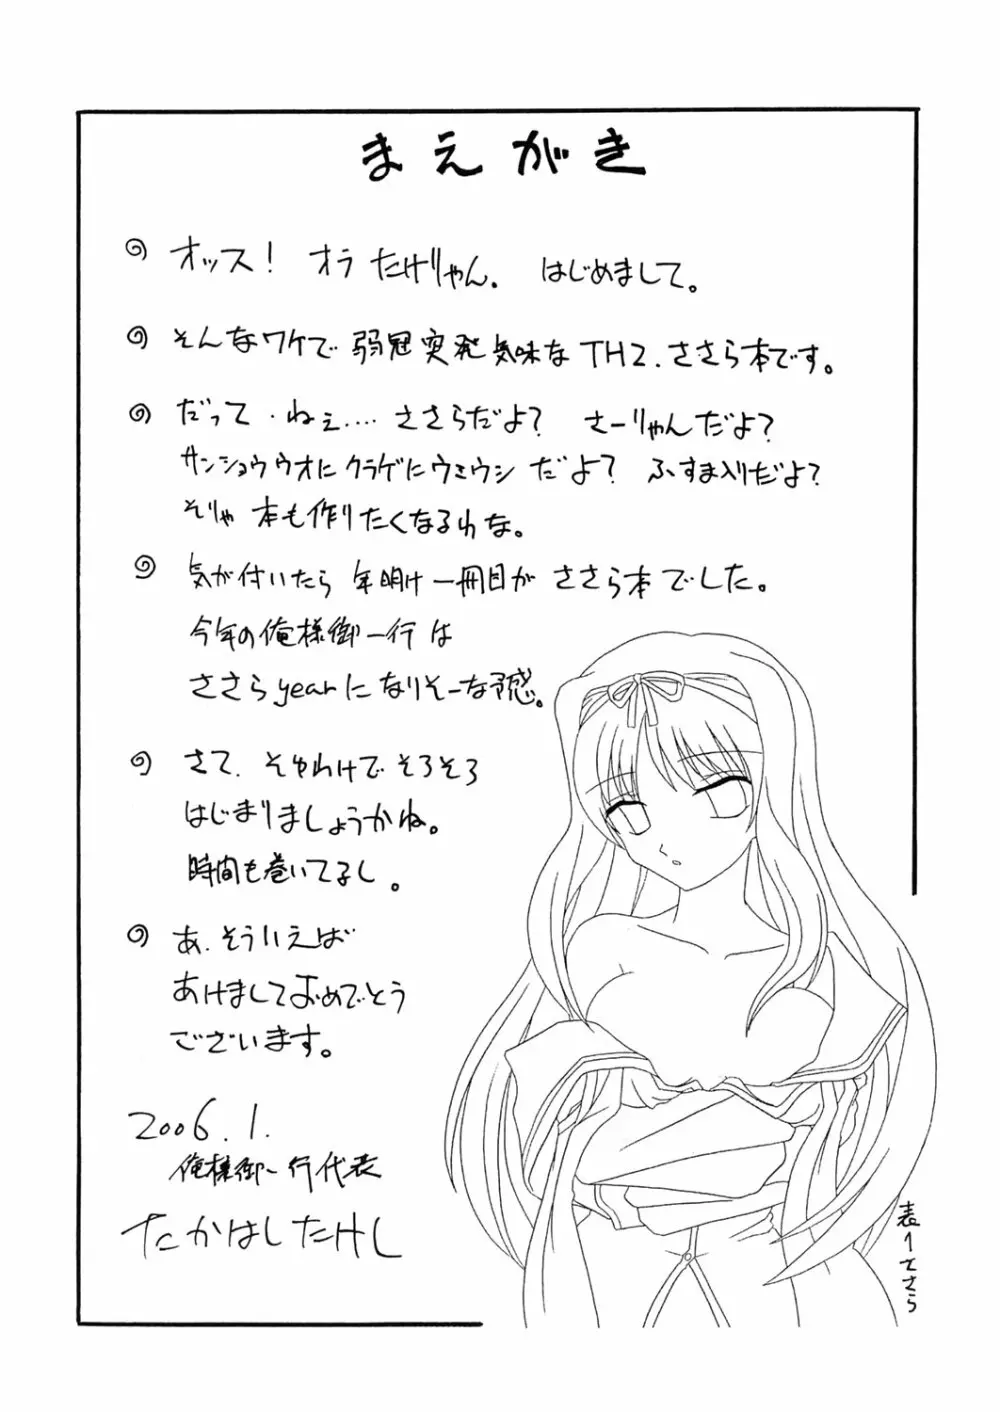 まえがき
オッス! オラ たけりゃん. はじめまして。
そんなワケで 弱冠突発気味な TH2. ささら本です。
だって.ねぇ.... ささらだよ? さーりゃんだよ?
サンショウウオにクラゲにウミウシ だよ? ふすま入りだよ?
そりゃ 本も作りたくなるわな。
気が付いたら 年明け一冊目が ささら本でした。
今年の俺様御一行は
ささらyearになりそーな予感。
さて. そゆわけで そろそろ
はじまりましょうかね。
時間も巻いてるし。
あ.そういえば
あけましておめでとう
ございます。
2006.1.
俺様御一行代表
たかはしたけし